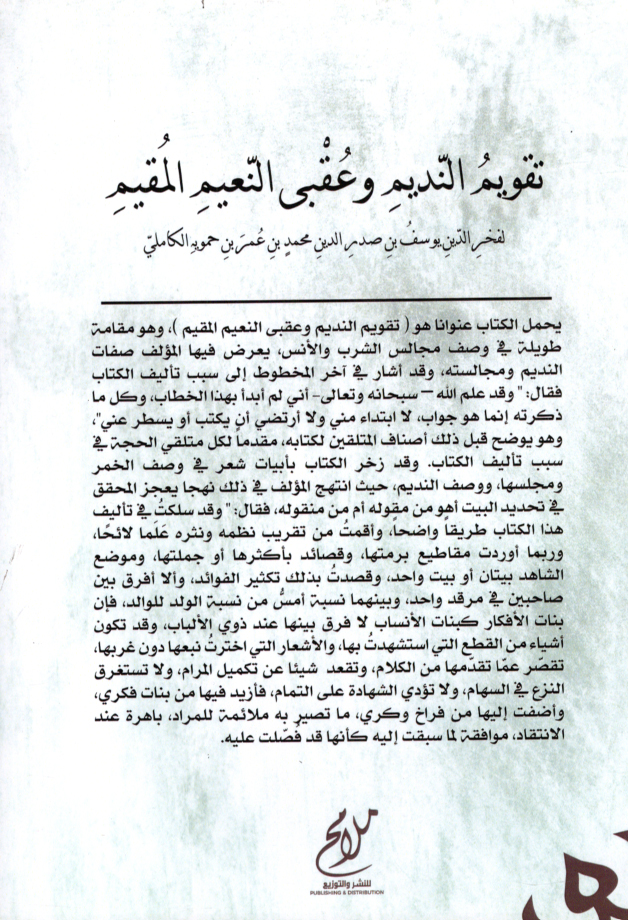 تقويمُ النّديمِ وعُقْبى النّعيمِ المُقيمِ
لفخرِ الدّينِ يوسفُ بنِ صدرِ الدينِ محمدٍ بنِ عُمرَ بنِ حمويهِ الكامليّ
يحمل الكتاب عنوانا هو ( تقويم النديم وعقبى النعيم المقيم )، وهو مقامة
طويلة في وصف مجالس الشرب والأنس، يعرض فيها المؤلف صفات
النديم ومجالسته، وقد أشار في آخر المخطوط إلى سبب تأليف الكتاب
فقال: " وقد علم الله – سبحانه وتعالى- أني لم أبدأ بهذا الخطاب، وكل ما
ذكرته إنما هو جواب، لا ابتداء مني ولا أرتضي أن يكتب أو يسطر عني"،
وهو يوضح قبل ذلك أصناف المتلقين لكتابه، مقدماً لكل متلقي الحجة في
سبب تأليف الكتاب. وقد زخر الكتاب بأبيات شعر في وصف الخمر
ومجلسها، ووصف النديم، حيث انتهج المؤلف في ذلك نهجا يعجز المحقق
في تحديد البيت أهو من مقوله أم من منقوله، فقال: " وقد سلكتُ في تأليف
هذا الكتاب طريقاً واضحاً، وأقمتُ من تقريب نظمه ونثره عَلَما لائحًا،
وربما أوردت مقاطيع برمتها، وقصائد بأكثرها أو جملتها، وموضع
الشاهد بيتان أو بيت واحد، وقصدتُ بذلك تكثير الفوائد، وألا أفرق بين
صاحبين في مرقد واحد، وبينهما نسبة أمسُّ من نسبة الولد للوالد، فإن
بنات الأفكار كبنات الأنساب لا فرق بينها عند ذوي الألباب، وقد تكون
أشياء من القطع التي استشهدتُ بها، والأشعار التي اخترت نبعها دون غربها،
تقصّر عمّا تقدّمها من الكلام، وتقعد شيئا عن تكميل المرام، ولا تستغرق
النزع في السهام، ولا تؤدي الشهادة على التمام، فأزيد فيها من بنات فكري،
وأضفت إليها من فراخ وكري، ما تصير به ملائمة للمراد، باهرة عند
الانتقاد، موافقة لما سبقت إليه كأنها قد فُصّلت عليه.
ملامح
للنشر والتوزيع
PUBLISHING & DISTRIBUTION